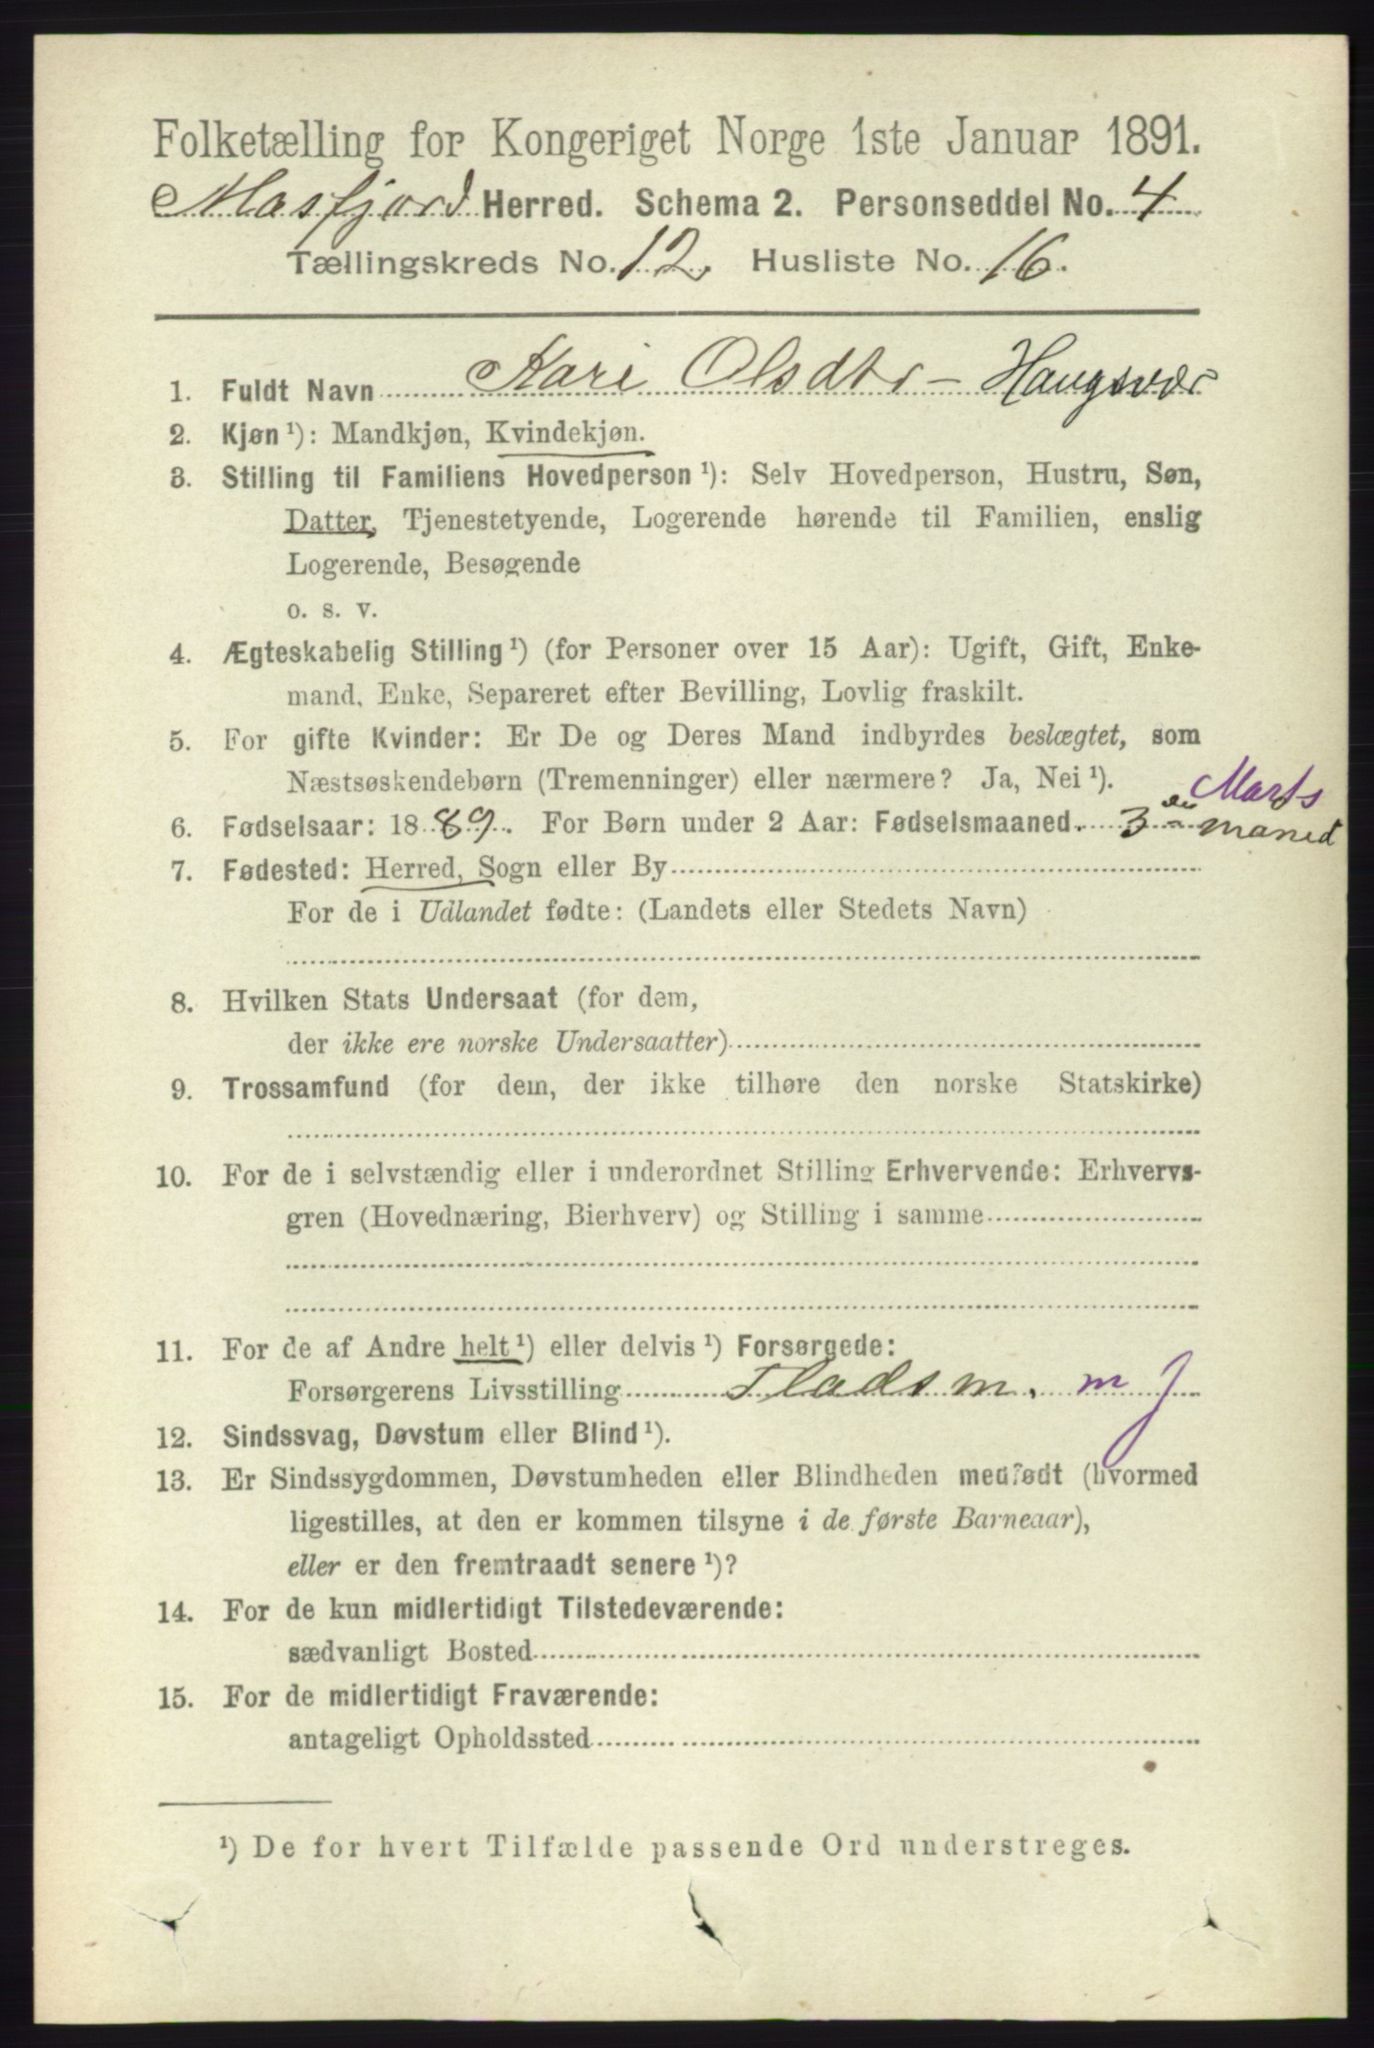 Folketælling for Kongeriget Norge 1ste Januar 1891.
Masfjord Herred. Schema 2. Personseddel No. 4
Tællingskreds No. 12. Husliste No. 16.
1. Fuldt Navn Kari Olsdtr - Haugsvær
2. Kjøn ¹): Mandkjøn, Kvindekjøn.
3. Stilling til Familiens Hovedperson ¹): Selv Hovedperson, Hustru, Søn,
Datter, Tjenestetyende, Logerende hørende til Familien, enslig
Logerende, Besøgende
o. s. v.
4. Ægteskabelig Stilling ¹) (for Personer over 15 Aar): Ugift, Gift, Enke-
mand, Enke, Separeret efter Bevilling, Lovlig fraskilt.
5. For gifte Kvinder: Er De og Deres Mand indbyrdes beslægtet, som
Næstsøskendebørn (Tremenninger) eller nærmere? Ja, Nei ¹).
Marts
6. Fødselsaar: 1889. For Børn under 2 Aar: Fødselsmaaned. 3 maned
7. Fødested: Herred, Sogn eller By
For de i Udlandet fødte: (Landets eller Stedets Navn)
8. Hvilken Stats Undersaat (for dem,
der ikke ere norske Undersaatter)
9. Trossamfund (for dem, der ikke tilhøre den norske Statskirke)
10. For de i selvstændig eller i underordnet Stilling Erhvervende: Erhvervs-
gren (Hovednæring, Bierhverv) og Stilling i samme
11. For de af Andre helt ¹) eller delvis ¹) Forsørgede:
Forsørgerens Livsstilling m J
12. Sindssvag, Døvstum eller Blind ¹).
13. Er Sindssygdommen, Døvstumheden eller Blindheden medfødt (hvormed
ligestilles, at den er kommen tilsyne i de første Barneaar),
eller er den fremtraadt senere ¹)?
14. For de kun midlertidigt Tilstedeværende:
sædvanligt Bosted
15. For de midlertidigt Fraværende:
antageligt Opholdssted
¹) De for hvert Tilfælde passende Ord understreges.